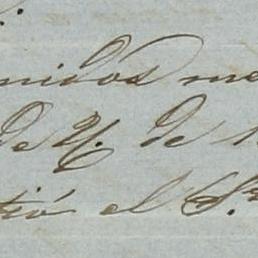 nidos me
de V. de
tió el Sr